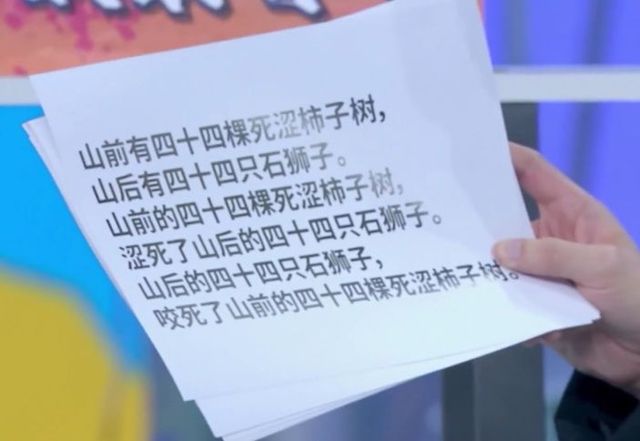 山前有四十四棵死涩柿子树，
山后有四十四只石狮子。
山前的四十四棵死涩柿子树，
涩死了山后的四十四只石狮子。
山后的四十四只石狮子，
咬死了山前的四十四棵死涩柿子树。